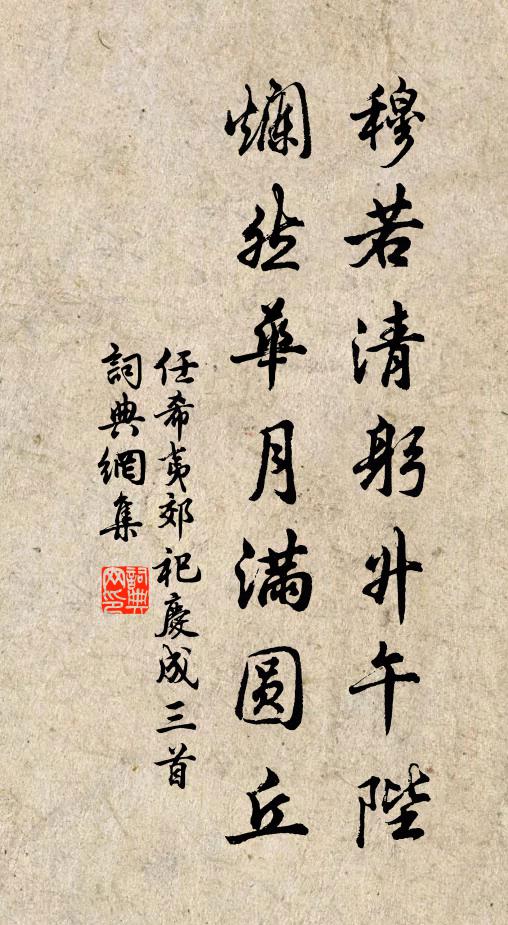 穆若清躬升午陛
爛然華月滿圓丘
任希夷郊祀慶成三首
詞典網集
詞典網印